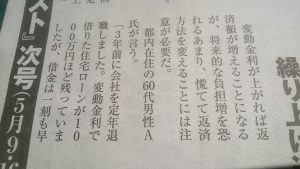 繰り上げ
変動金利が上がれば返
済額が増えることになる
が、将来的な負担増を恐
れるあまり、慌てて返済
方法を変えることには注
意が必要だ。
都内在住の60代男性A
氏が言う。
「3年前に会社を定年退
職しました。変動金利で
借りた住宅ローンが10
00万円ほど残っていま
したが、借金は一刻も早
スト』次号(5月9・16